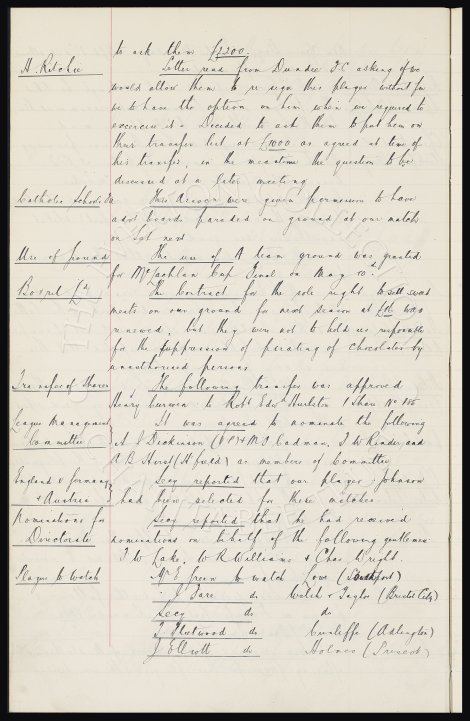 to ask them £1200.
H. Ritchie Letter read from Dundee F.C asking if we
would allow them to re sign this player without fee
we to have the option on him when we required to
exercise it. Decided to ask them to put him on
their transfer list at £1000 as agreed at time of
his transfer, in the meantime the question to be
discussed at a later meeting
Catholic Schools This Association were given permission to have
advt boards paraded on ground at our match
on Sat next
Use of ground The use of A team ground was granted
for McLachlan Cup Final on May 10.
The Contract for the sole right to sell sweet
meats on our ground for next season at was
renewed, but they were not to hold us responsible
for the suppression of pirating of chocolates by
unauthorised persons
Transfer of Shares The following transfer was approved
Henry to Robt Edwd 1 Share No 185
League Management It was agreed to nominate the following
Committee A E Dickinson Cadman, T W and
A B Hurst as members of Committee
England v Germany Secy reported that our player Johnson
& Austria had been selected for these matches
Nominations for Secy reported that he had received
Directorate nominations on behalf of the following gentlemen
T W Lake, W R Williams & Chas Wright.
Players to Watch Mr E Green to watch Love (Southport)
" J Sare do Welch & Taylor (Bristol City)
Secy do do
T Fleetwood do Cunliffe (Adlington)
J Elliott do Holmes (Prescot)